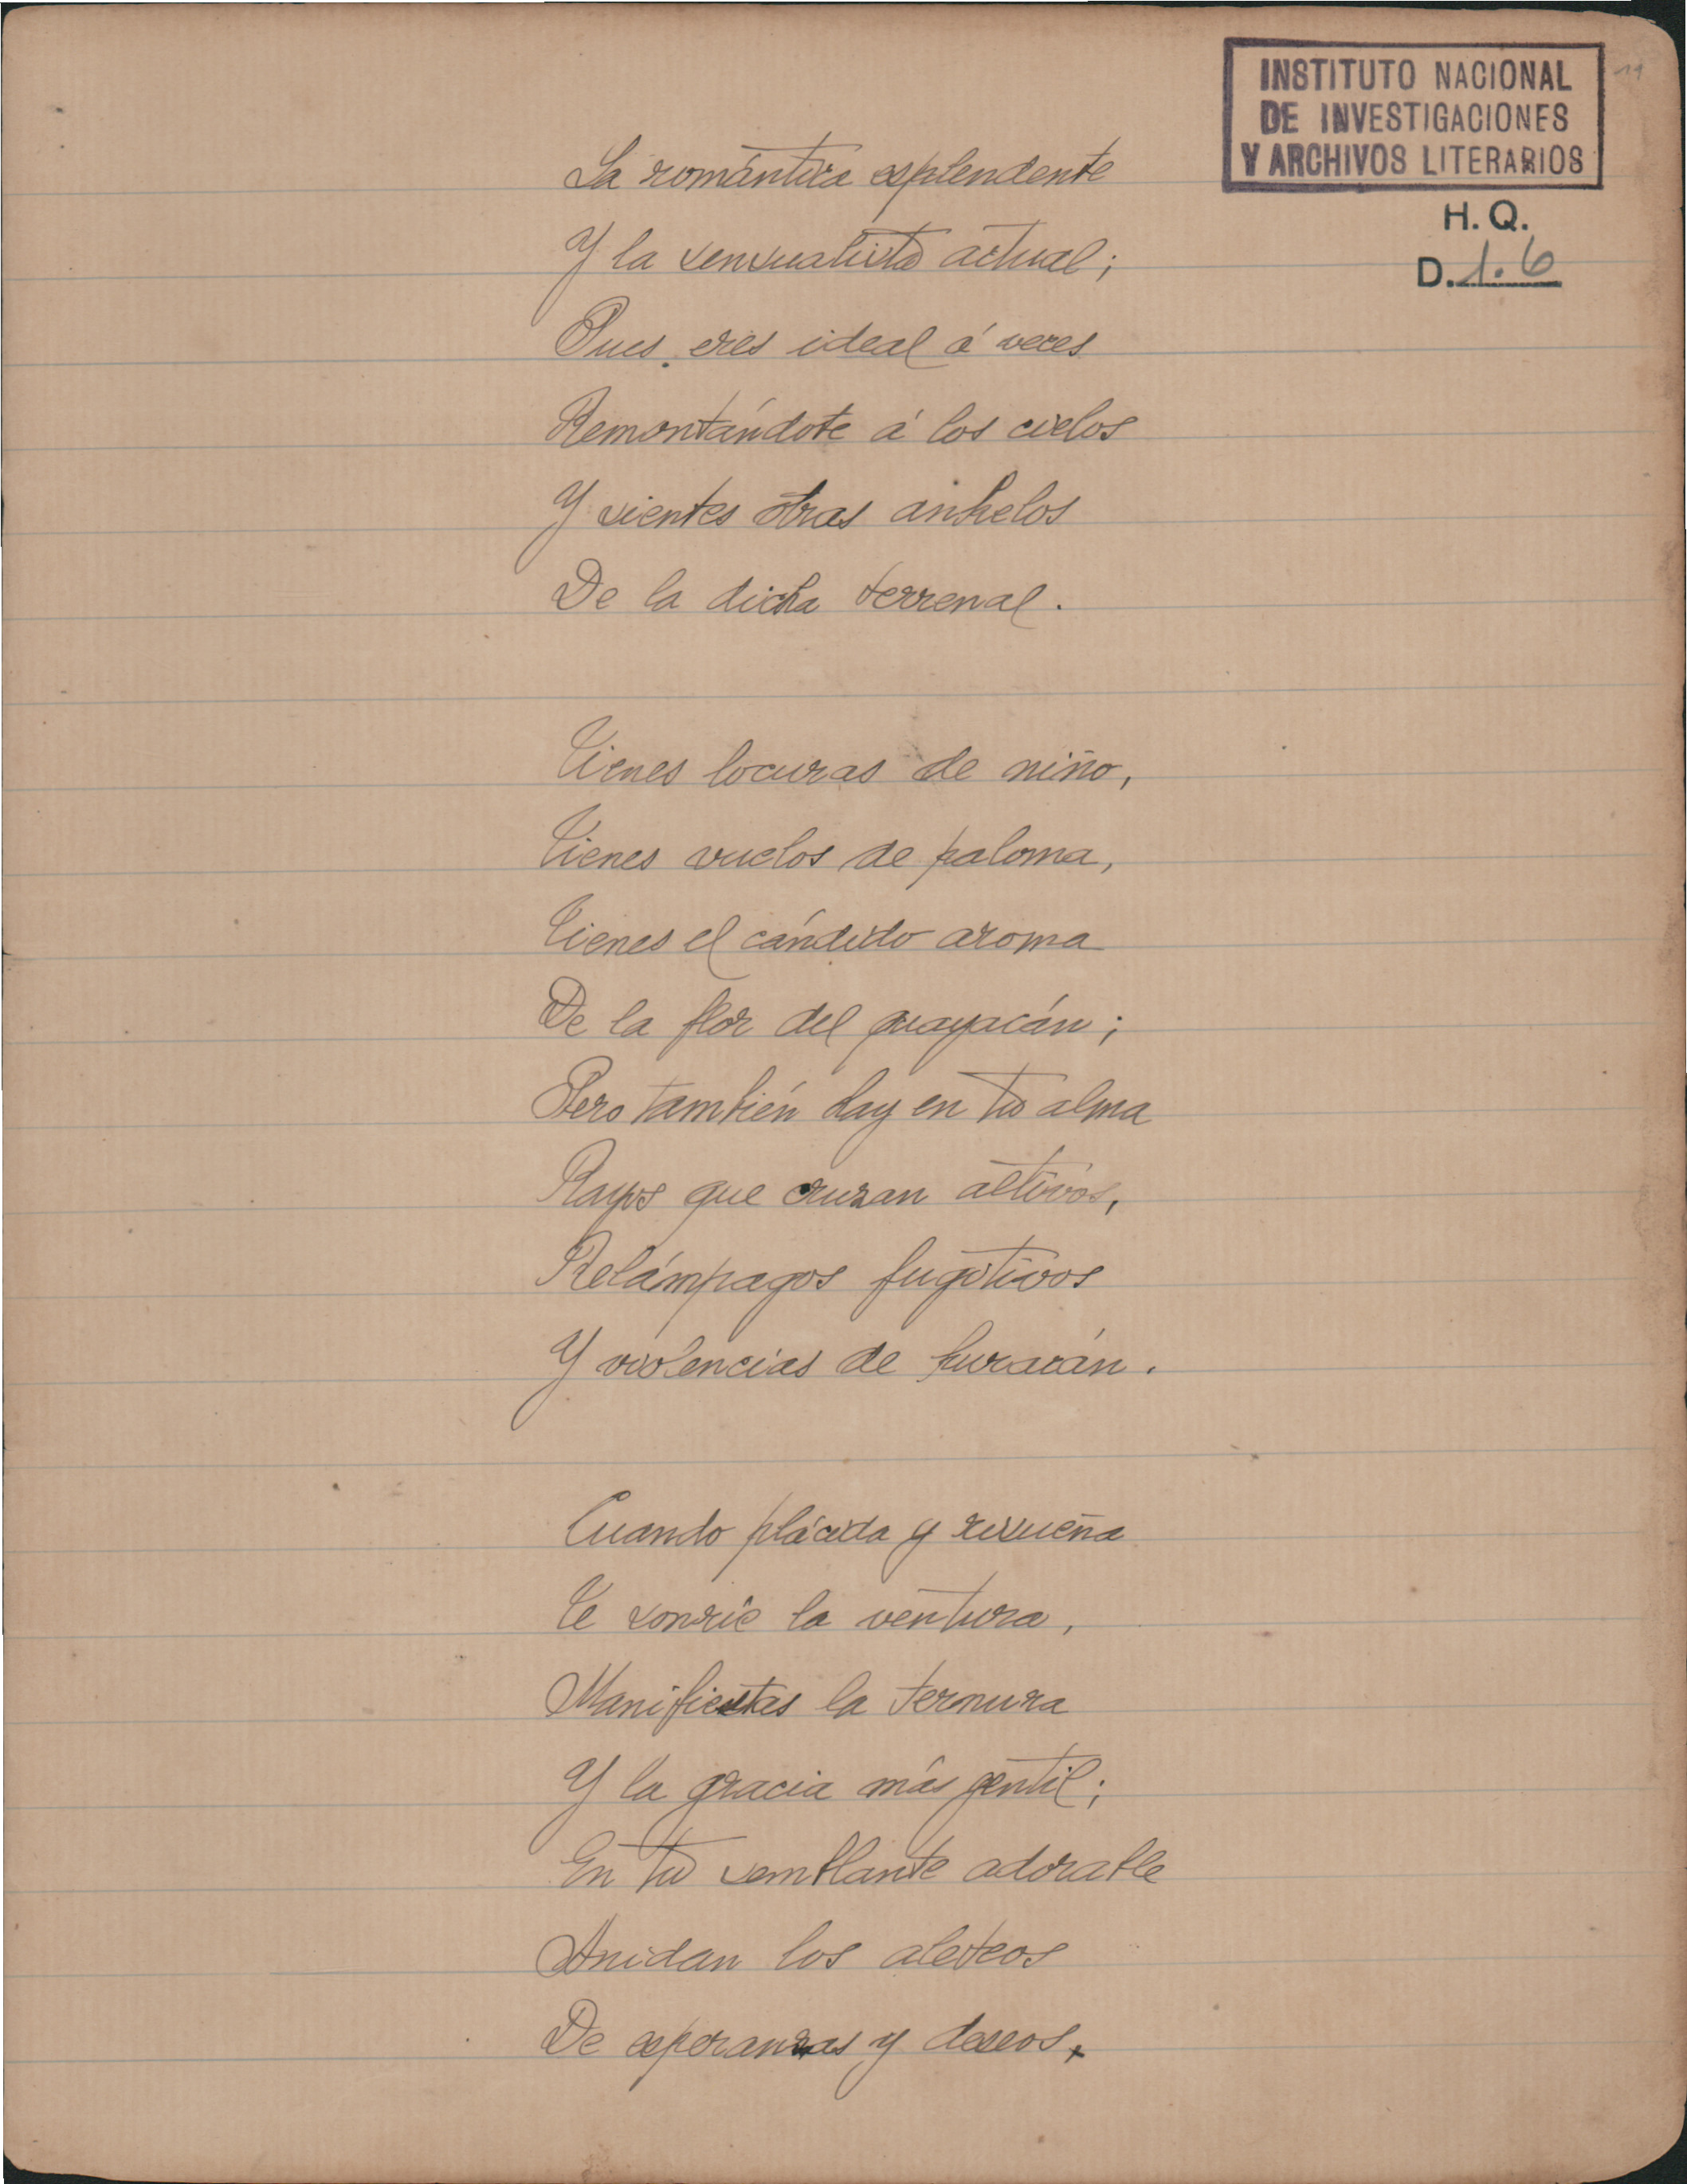 INSTITUTO NACIONAL
DE INVESTIGACIONES
Y ARCHIVOS LITERARIOS
H. Q.
D. 1.6
La romántica esplendente
Y la sensualista actual;
Pues eres ideal á veces
Remontándote á los cielos
Y sientes otras anhelos
De la dicha terrenal.
Tienes locuras de niño,
Tienes vuelos de paloma,
Tienes el cándido aroma
De la flor del guayacán;
Pero también hay en tu alma
Rayos que cruzan altivos,
Relámpagos fugitivos
Y violencias de huracán.
Cuando plácida y risueña
Te sonríe la ventura,
Manifiestas la ternura
Y la gracia más gentil;
En tu semblante adorable
Anidan los aleteos
De esperanzas y deseos,